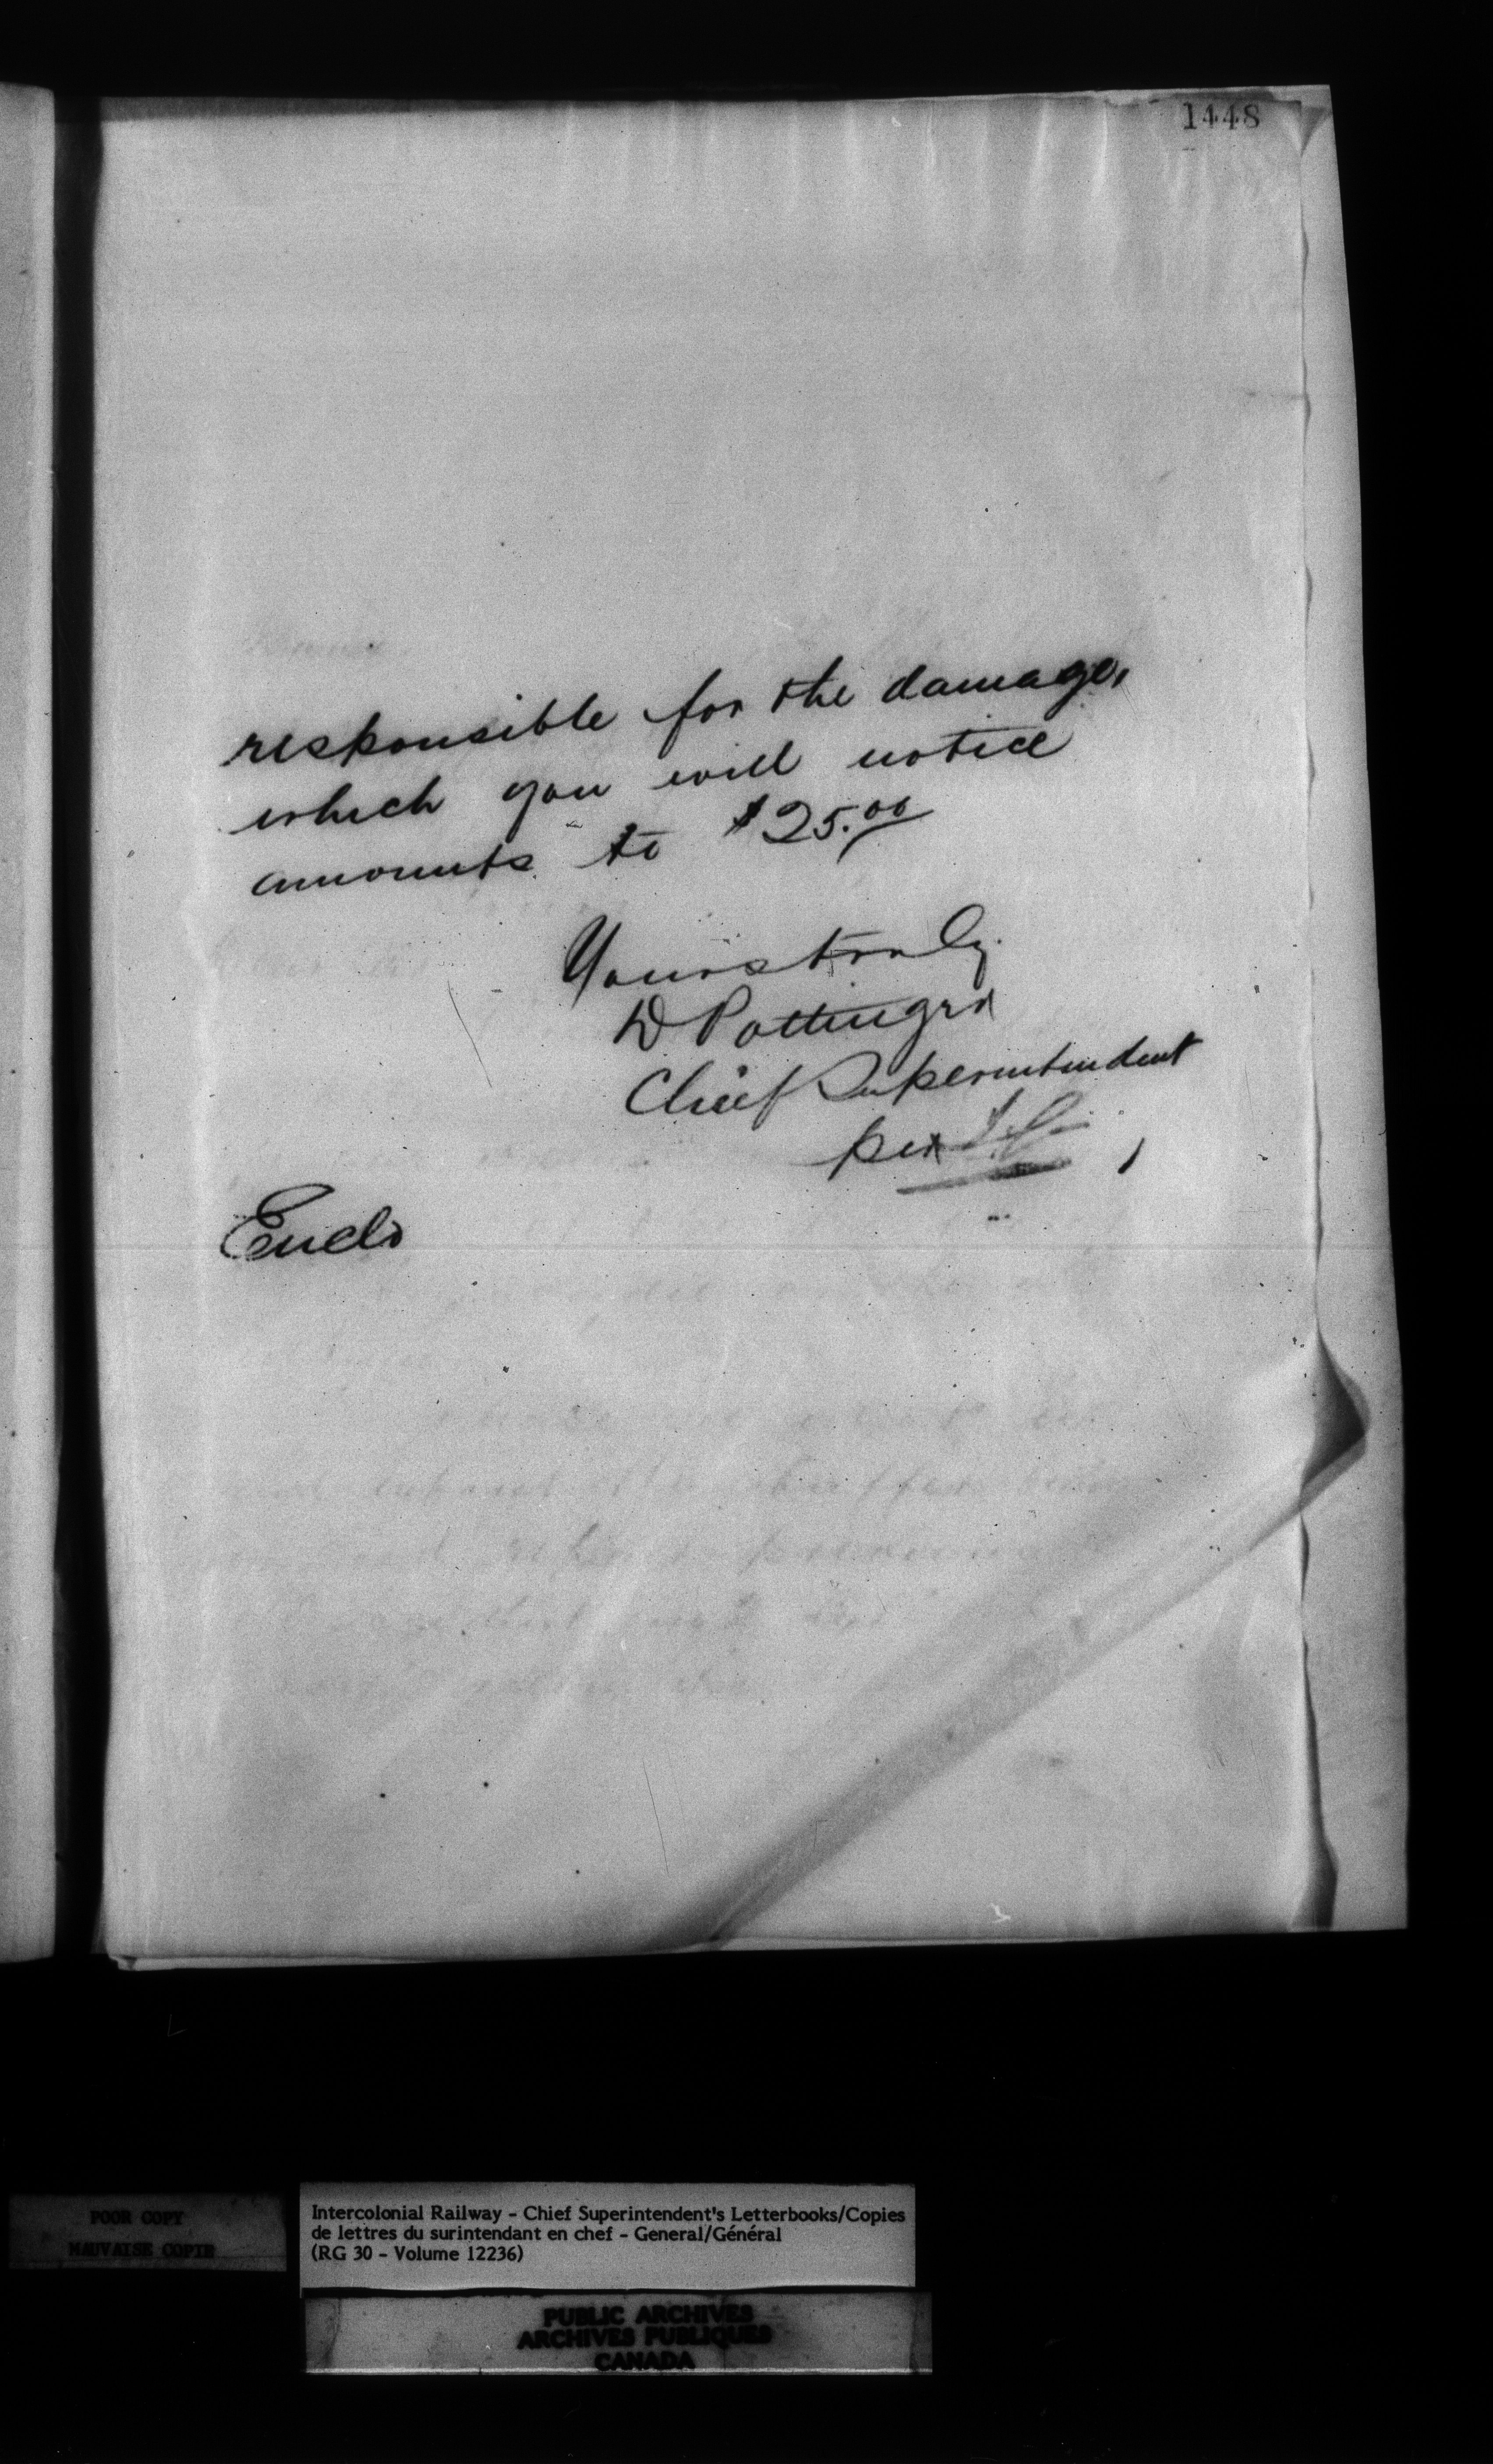 1448
responsible for the damage,
which you will notice
amounts to $25.00
Yours truly.
D Pottinger
Chief Superintendent
per
Encls
POOR COPY
MAUVAISE COPIE
Intercolonial Railway - Chief Superintendent's Letterbooks/Copies
de lettres du surintendant en chef - General/Général
(RG 30 - Volume 12236)
PUBLIC ARCHIVES
ARCHIVES PUBLIQUES
CANADA